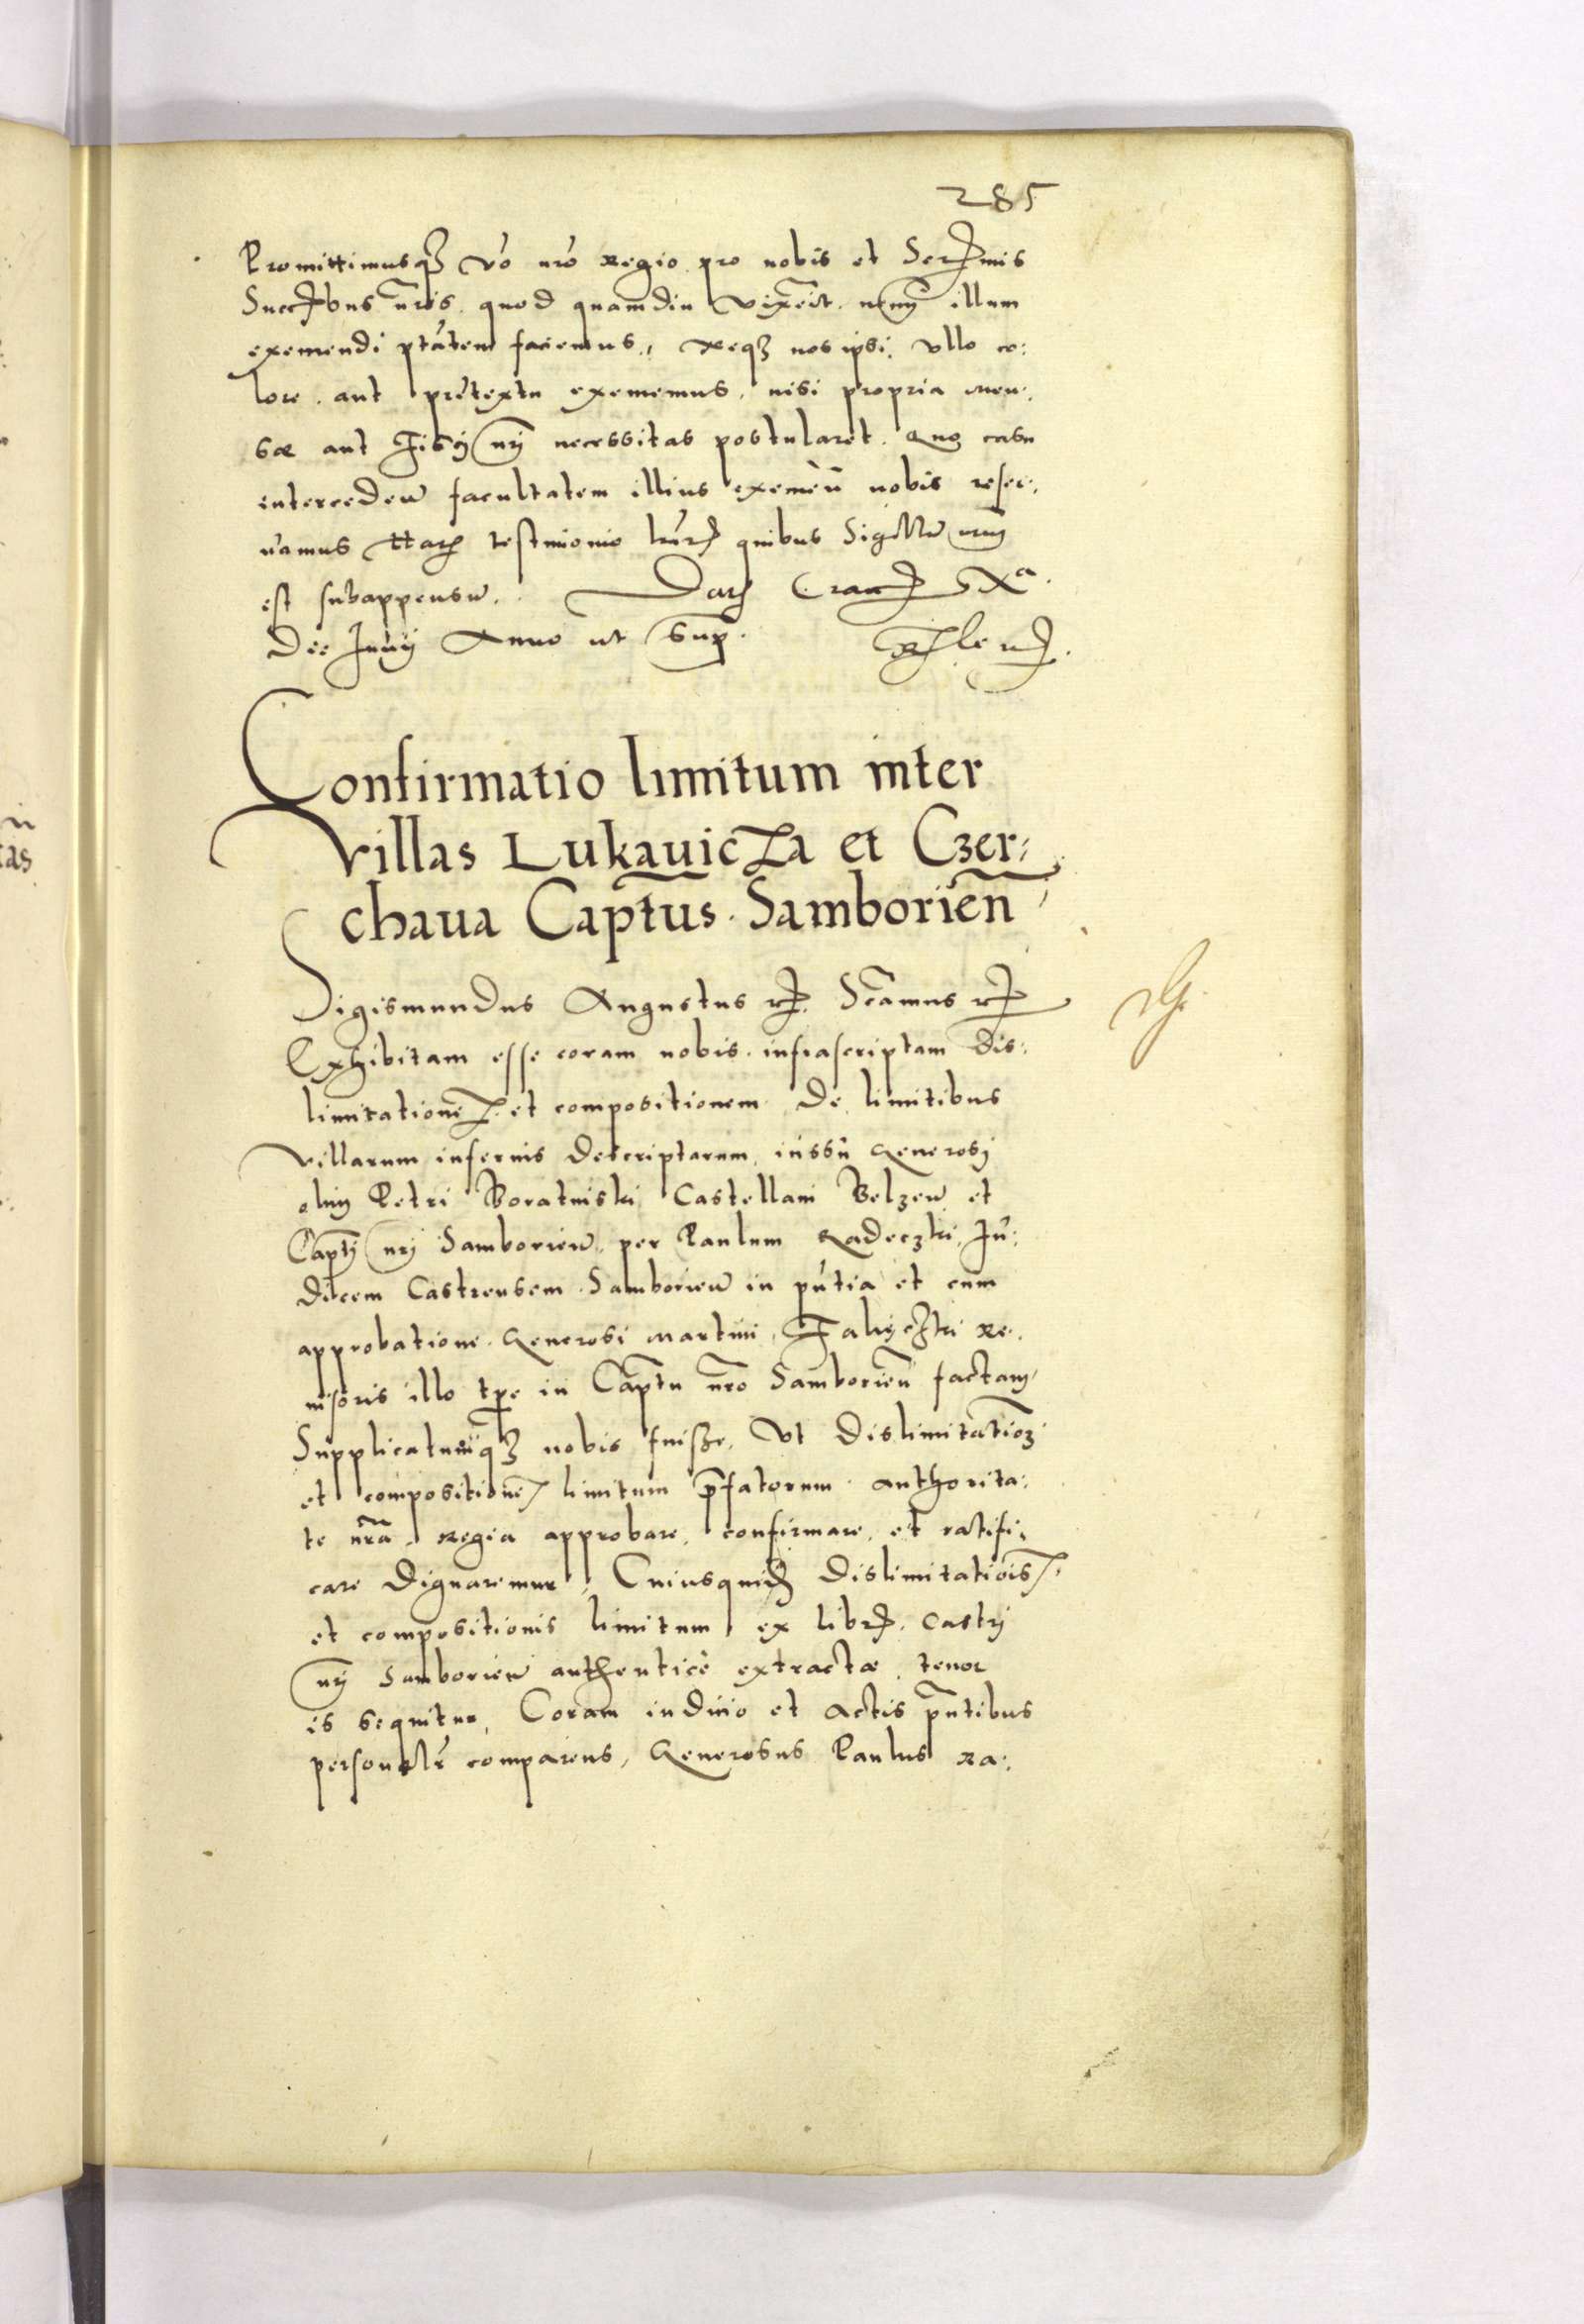 285
Promittimusqз vo nro Regio pro nobis et Sermis
Succribus nris. quod quamdiu vixerit. nemi illum
exemendi ptatem faciemus, Neqз nos ipsi, vllo co:
lore. aut pretextu exememus, nisi propria men:
sæ aut Fisci nri necessitas postularet. Quo casu
intercedeñ facultatem illius exemeñ nobis reser:
uamus Harz testimonio lrarz quibus Sigillũ nrm
est subappensũ. Datz Crac X a
Die Junij Anno ut Supʳ.
Confirmatio limitum inter
villas Lukauicza et Czer:
chaua Captus. Samborieñ
Sigismundus Augustus rz. Scamus rz
Exhibitam esse coram nobis. infrascriptam Dis:
limitatione. et compositionem De limitibus
villarum inferius descriptarum, iussu Generosi
olim Petri Boratinski Castellani Belzeñ et
Capti nri Samborieñ. per Paulum Radeczki Iu:
dicem Castrensem Samborieñ in pñtia et cum
approbatione. Generosi Martini, Re:
uisoris illo tpe in Captu nro Samborieñ factam,
Supplicatumqз nobis fuisse, Vt Dislimitatioз
et compositione limitum pfatorum authorita:
te nra Regia approbare, confirmare, et ratifi:
care Dignaremur, Cuiusquidz Dislimitatiois
et compositionis limitum ex librz. Castri
nri Samborieñ authentice extractæ tenor
is sequitur, Coram iudicio et Actis pñtibus
personalr comparens, Generosus Paulus Ra: